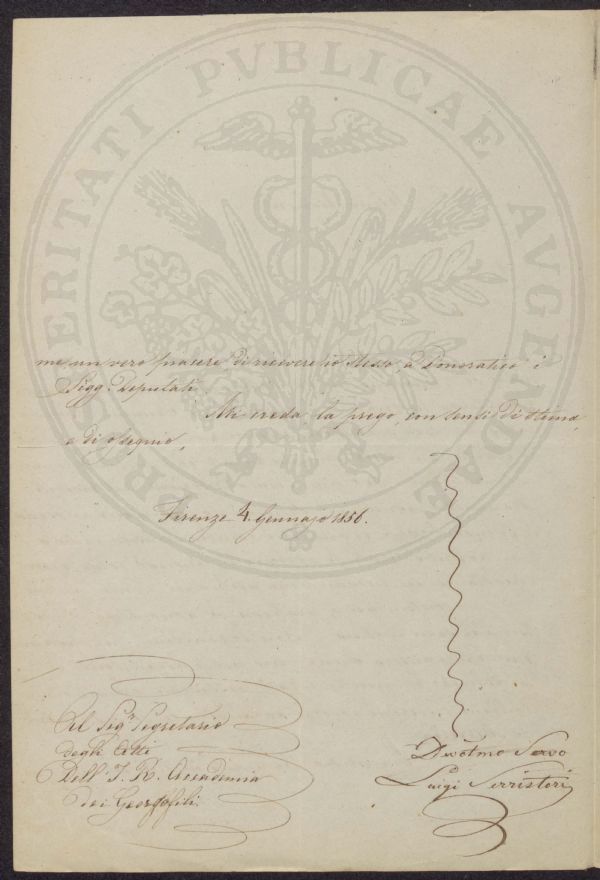 PROSPERITATI PVBLICAE AVGENDAE
me un vero piacere di ricevere io stesso, a Donoratico i
Sigg.i Deputati.
Mi creda, la prego, con sensi di stima,
e di ossequio,
Firenze 4. Gennajo 1856.
Al Sigr. Segretario
degli Atti
Dell' I. R. Accademia
dei Georgofili.
Devotmo Servo
Luigi Serristori